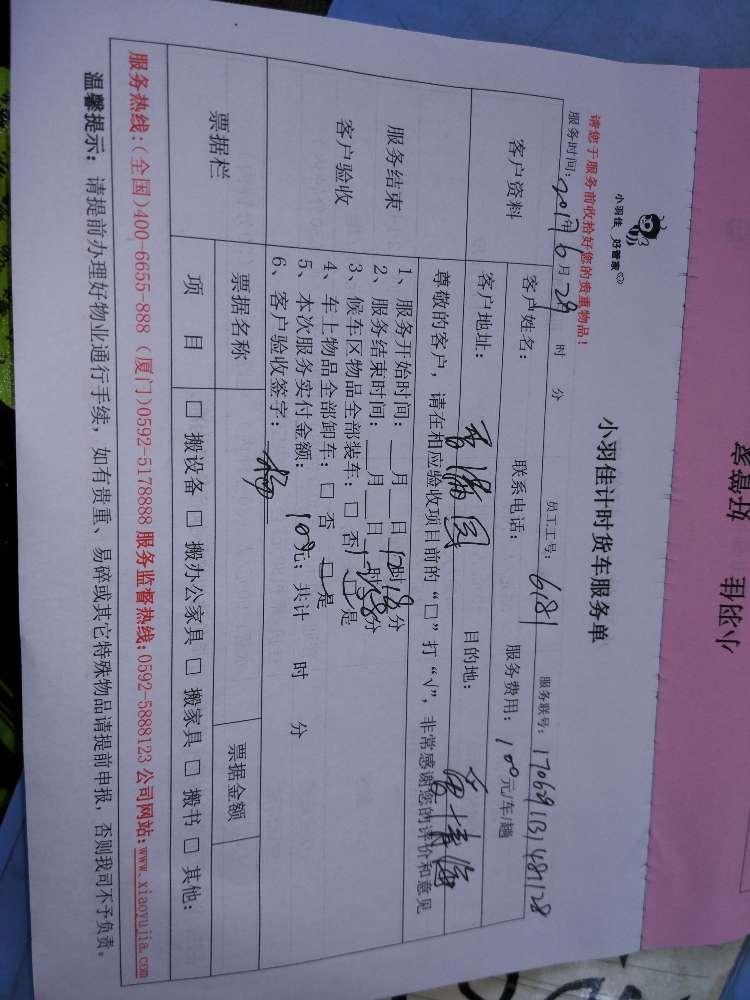 小羽佳 好管家
小羽佳计时货车服务单
请您于服务前收拾好您的贵重物品！
服务时间：2017年6月29 时 分 员工工号：6181 服务联号：170629131481128
客户资料
客户姓名： 联系电话： 服务费用：100元/车/趟
客户地址： 目的地：
服务结束
客户验收
尊敬的客户，请在相应验收项目前的“□”打“√”，非常感谢您的评价和意见
1、服务开始时间：__月__日 时18分
2、服务结束时间：__月__日 时58分
3、候车区物品全部装车：□ 否 □ 是
4、车上物品全部卸车：□ 否 □ 是
5、本次服务实付金额：100元；共计 时 分
6、客户验收签字：
票据栏
票据名称 票据金额
项 目 □ 搬设备 □ 搬办公家具 □ 搬家具 □ 搬书 □ 其他：
服务热线：（全国）400-6655-888（厦门）0592-5178888 服务监督热线：0592-5888123 公司网站：www.xiaoyujia.com
温馨提示：请提前办理好物业通行手续，如有贵重、易碎或其它特殊物品请提前申报，否则我司不予负责。
小羽佳